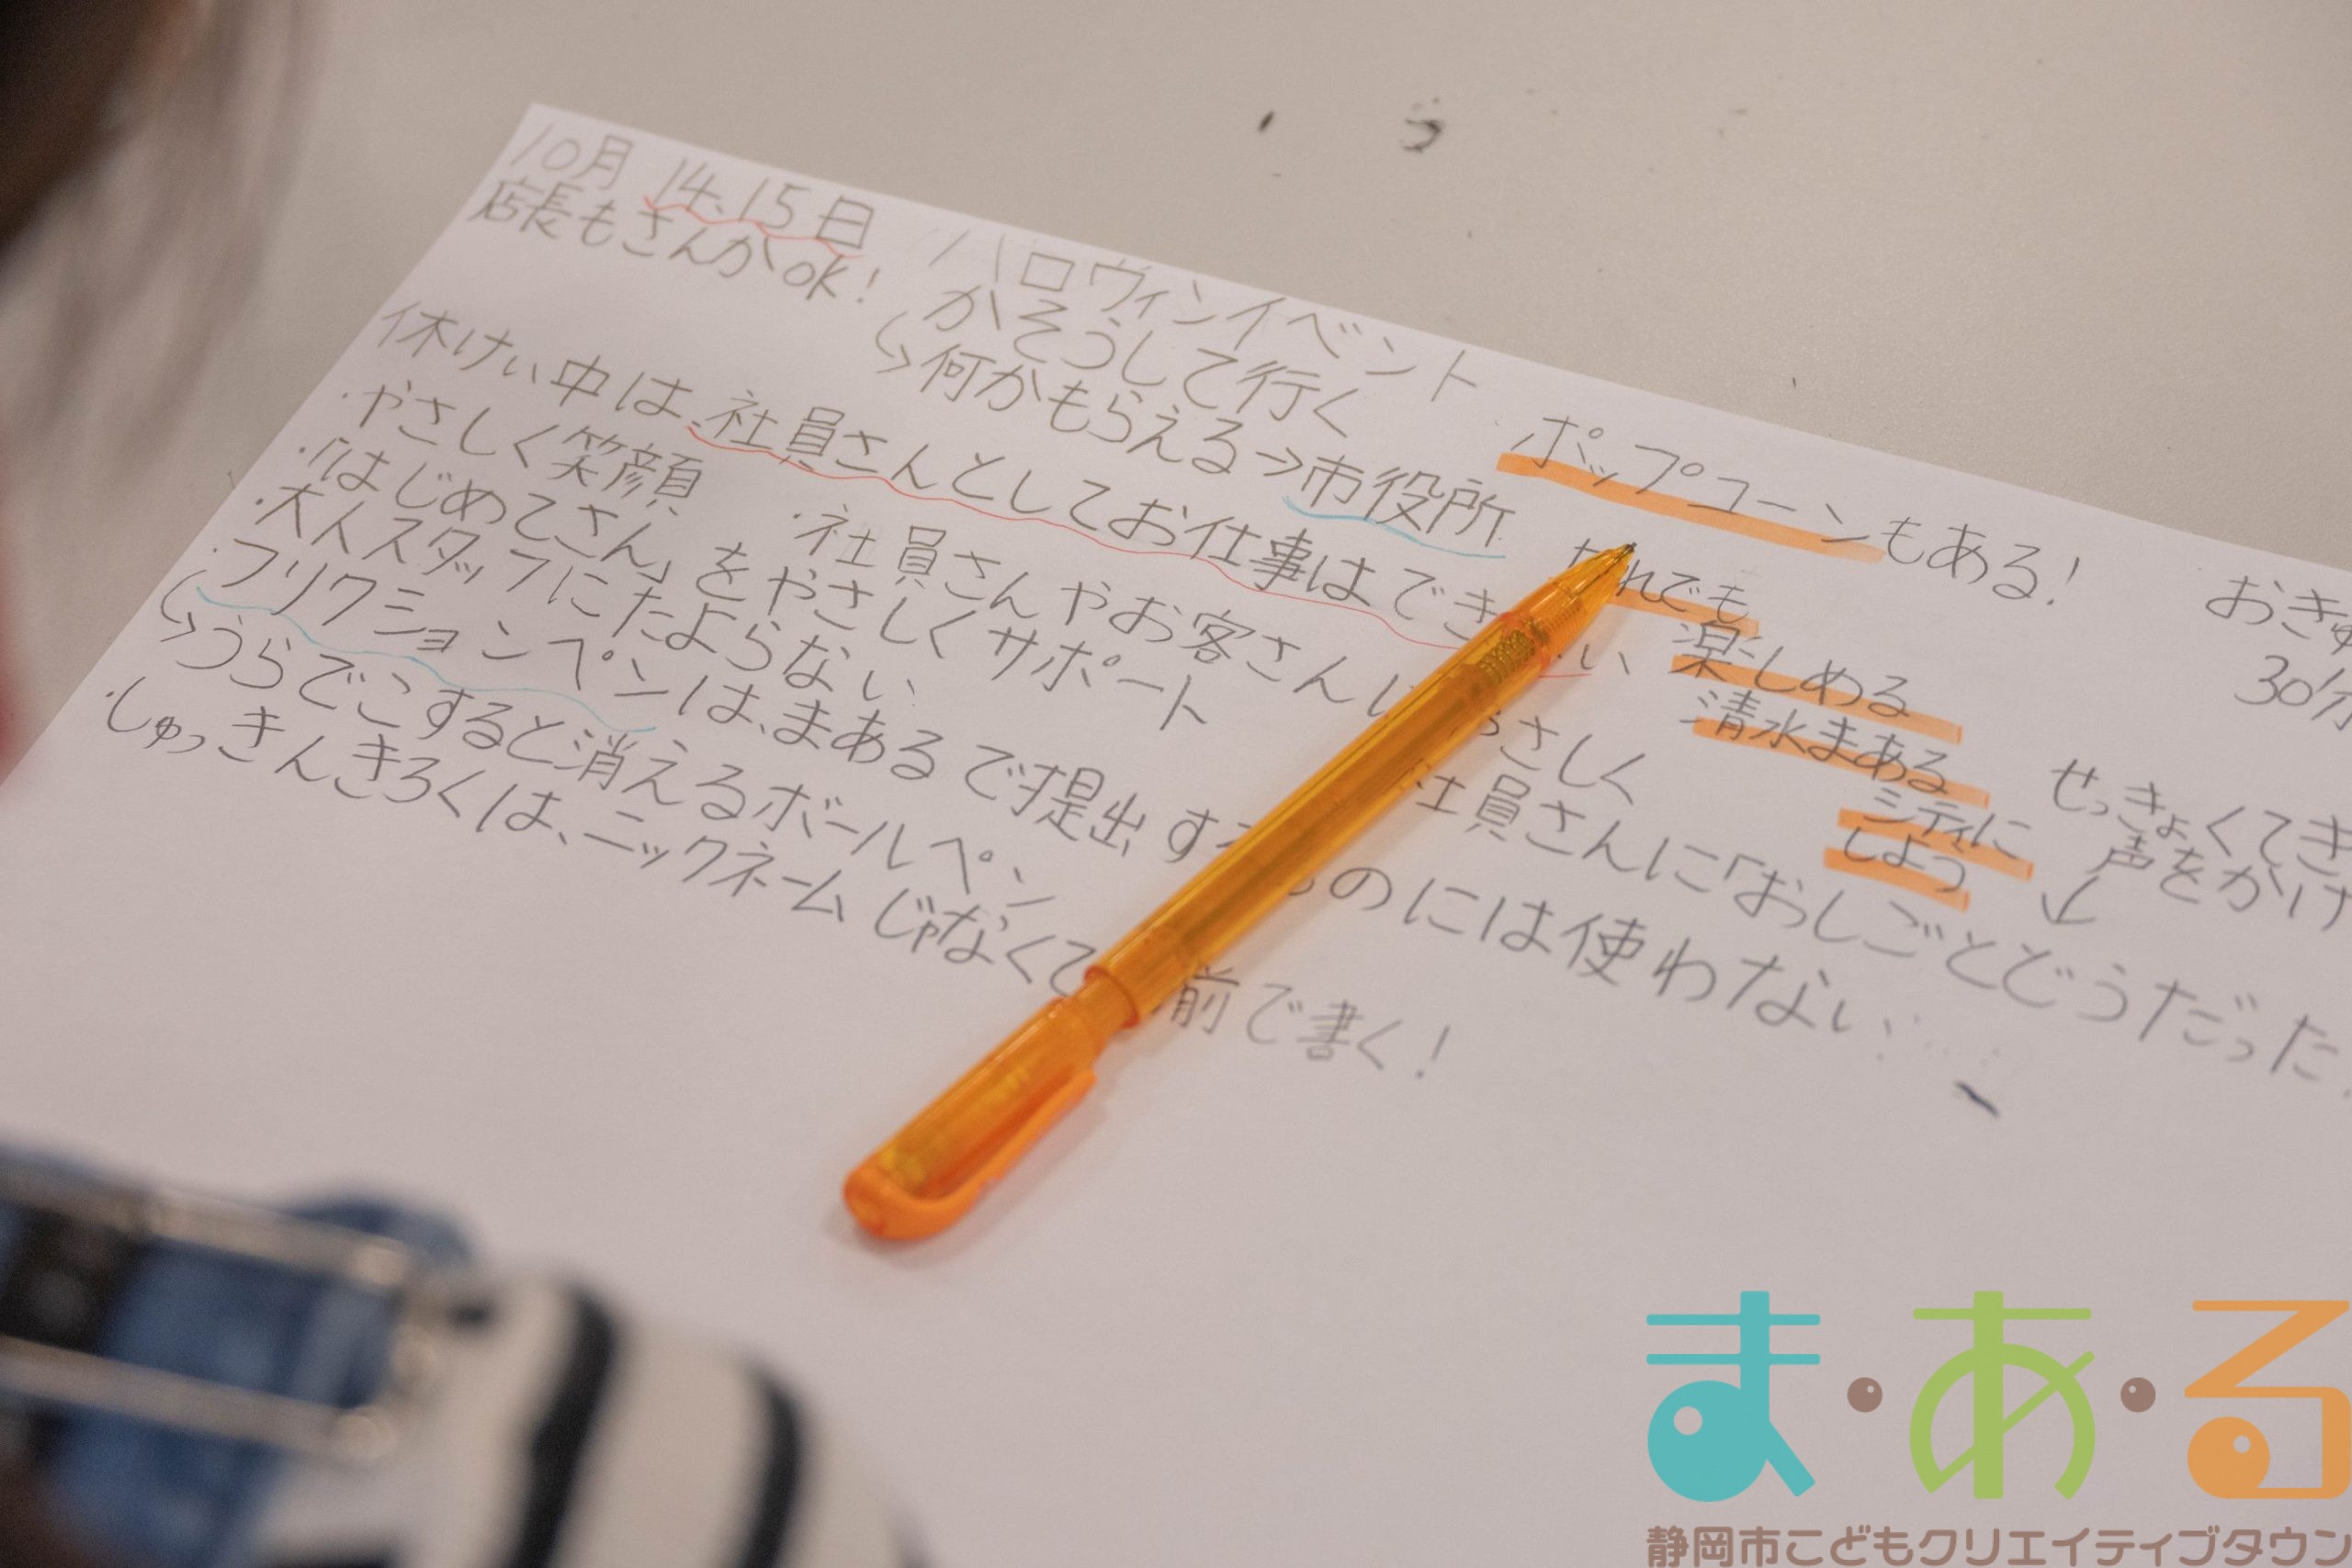 10月 14、15日 ハロウィンイベント
店長もさんかOK! かそうして行く
↳何かもらえる→市役所
ポップコーンもある!
休けい中は、社員さんとしてお仕事はでき い
・やさしく笑顔 ・社員さんやお客さんに さしく
・「はじめてさん」をやさしくサポート
・大人スタッフにたよらない
社員さんに「おしごとどうだった
・フリクションペンは、まあるで提出す ものには使わない
↳うらでこすると消えるボールペン
・しゅっきんきろくは、ニックネームじゃなくて 前で書く!
れでも
楽しめる
清水まある
シティに
しよう
おきゃ
30分
せっきょくてき
声をかけ
↓
ま・あ・る
静岡市こどもクリエイティブタウン